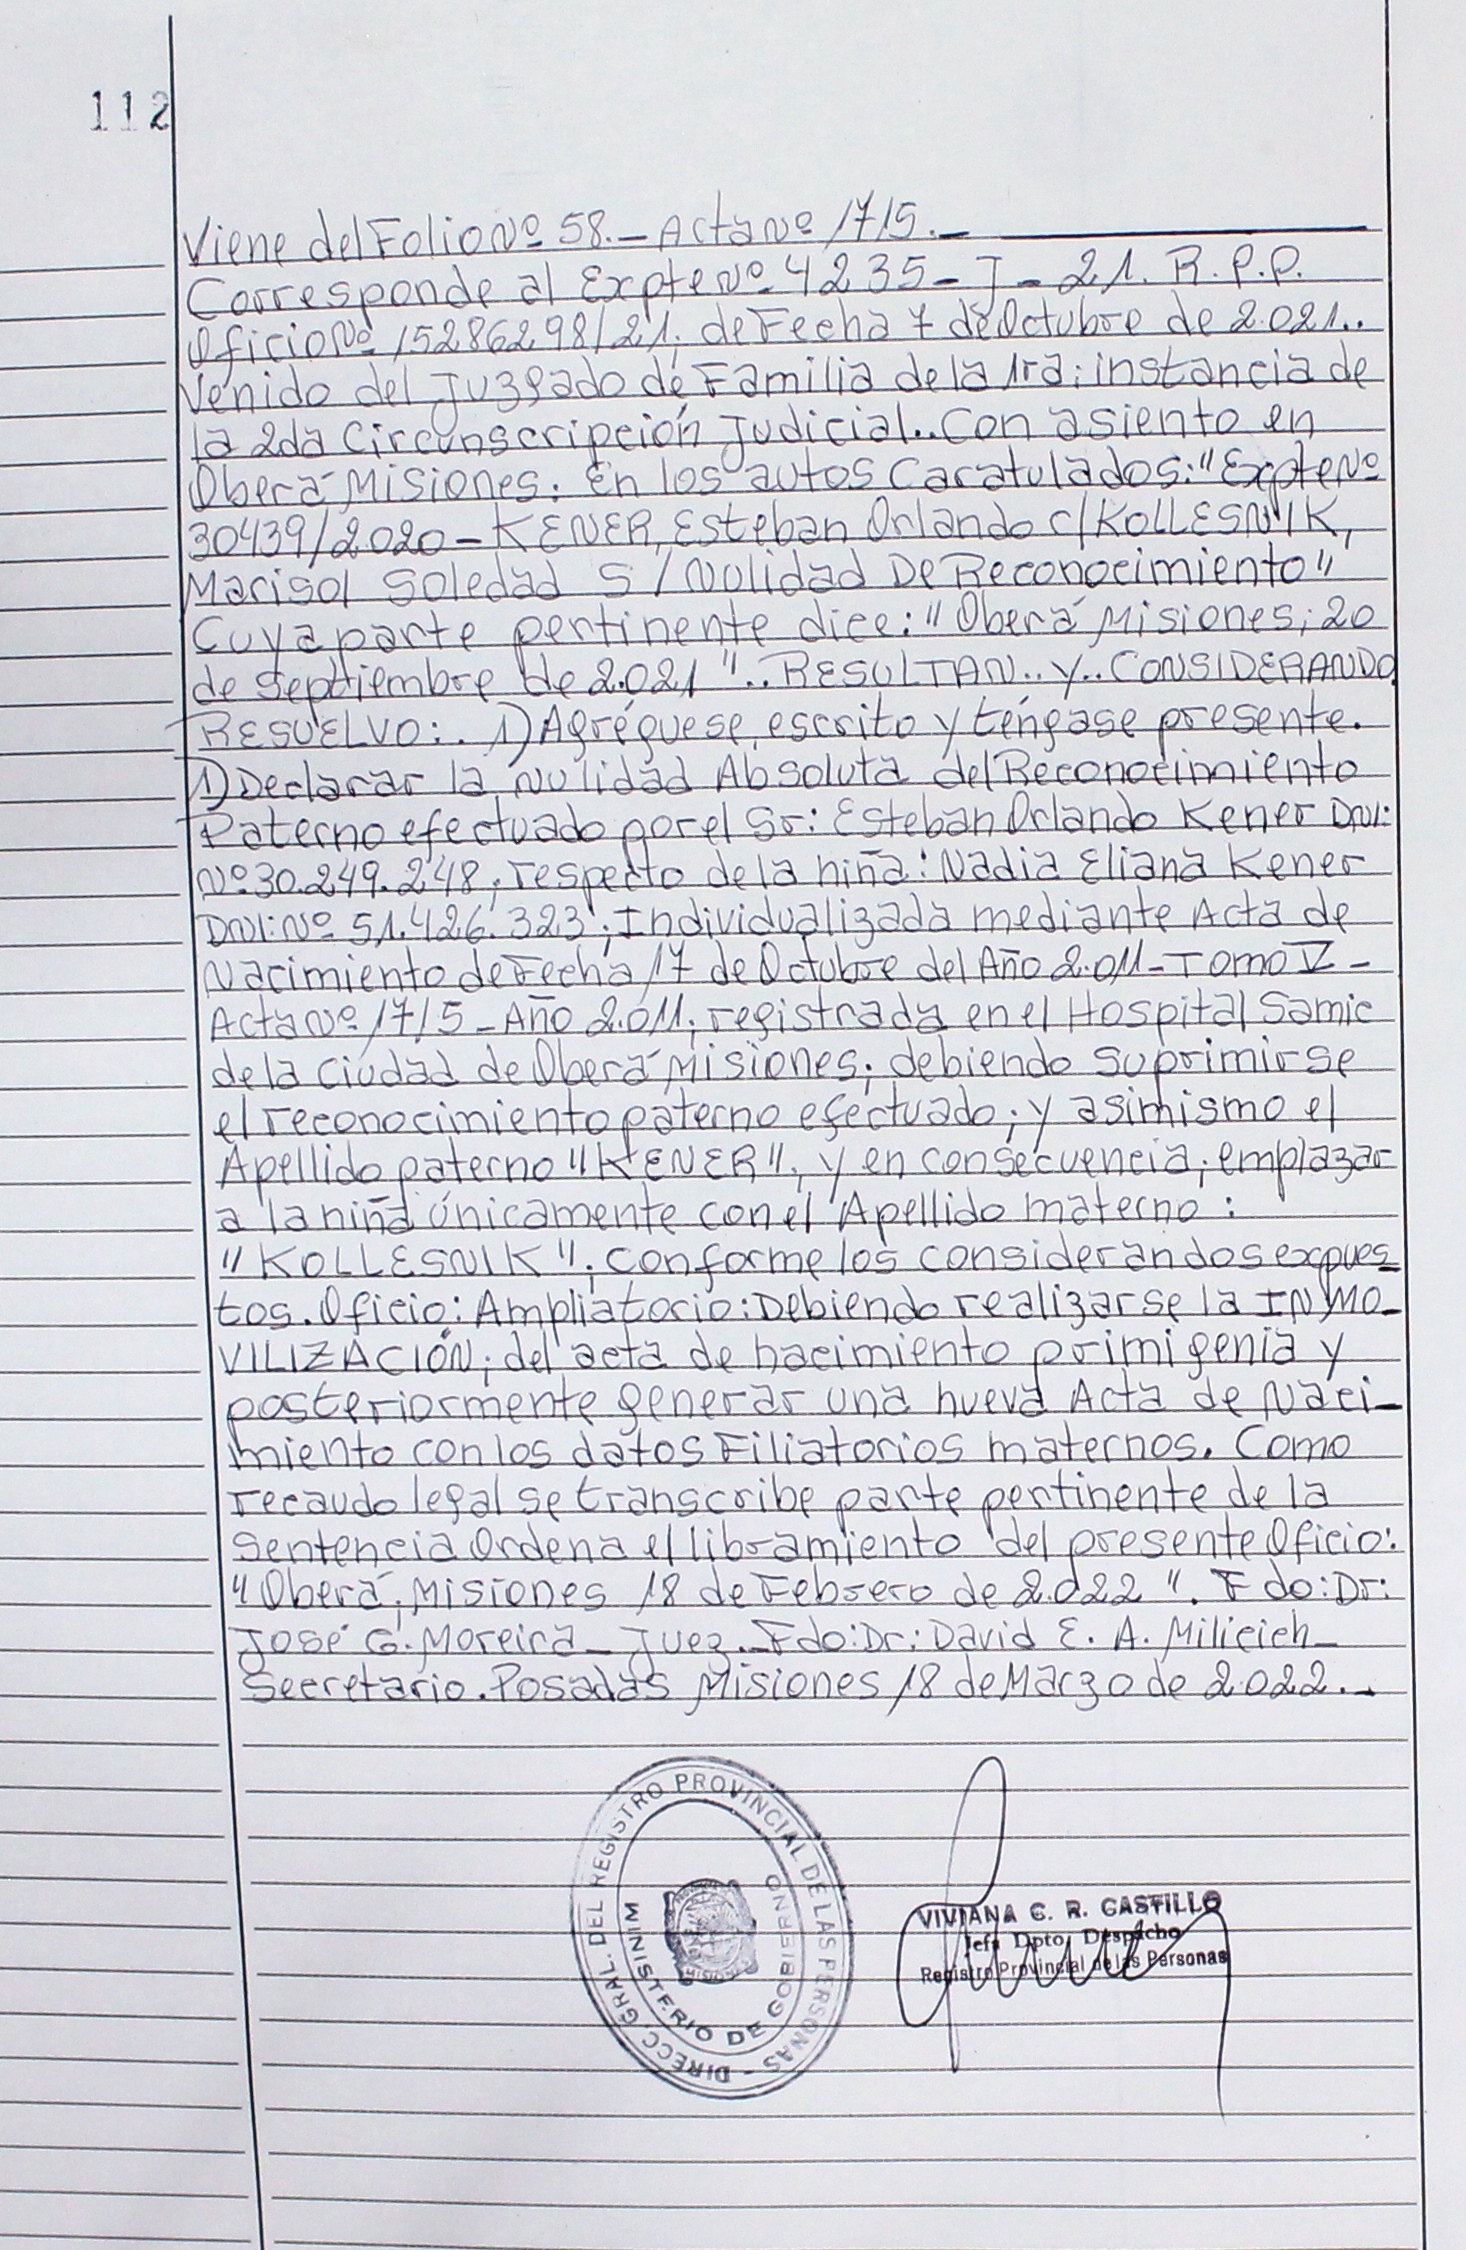 112
Viene del Folio Nº 58.- Acta Nº 1715.-
Corresponde al Expte Nº 4235-J-21. R.P.P.
Oficio Nº 15286298/21; de Fecha 7 de Octubre de 2.021..
Venido del Juzgado de Familia de la 1ra; instancia de
la 2da Circunscripción Judicial.. Con asiento en
Oberá-Misiones; En los autos Caratulados: "Expte Nº
30439/2020 - KENER, Esteban Orlando c/ KOLLESNIK,
Marisol Soledad S/ Nulidad De Reconocimiento"
Cuya parte pertinente dice: "Oberá Misiones; 20
de Septiembre de 2.021".. RESULTAN.. y.. CONSIDERANDO
RESUELVO:. 1) Agréguese, escrito y téngase presente.
1) Declarar la Nulidad Absoluta del Reconocimiento
Paterno efectuado por el Sr: Esteban Orlando Kener DNI:
Nº 30.249.248; respecto de la niña: Nadia Eliana Kener
DNI: Nº 51.426.323; Individualizada mediante Acta de
Nacimiento de Fecha 17 de Octubre del Año 2.011-Tomo V-
Acta Nº 1715-Año 2.011; registrada en el Hospital Samic
de la Ciudad de Oberá-Misiones; debiendo suprimirse
el reconocimiento paterno efectuado; y asimismo el
Apellido paterno "KENER", y en consecuencia; emplazar
a la niña únicamente con el Apellido materno:
"KOLLESNIK"; conforme los considerandos expues-
tos. Oficio: Ampliatorio: Debiendo realizarse la INMO-
VILIZACIÓN; del acta de nacimiento primigenia y
posteriormente generar una nueva Acta de Naci-
miento con los datos Filiatorios maternos. Como
recaudo legal se transcribe parte pertinente de la
Sentencia Ordena el libramiento del presente Oficio:
"Oberá; Misiones 18 de Febrero de 2.022". Fdo: Dr:
José G. Moreira - Juez.- Fdo: Dr: David E. A. Milicich-
Secretario. Posadas Misiones 18 de Marzo de 2.022.-
DIRECC. GRAL. DEL REGISTRO PROVINCIAL DE LAS PERSONAS -
MINISTERIO DE GOBIERNO
VIVIANA C. R. CASTILLO
Jefa Dpto. Despacho
Registro Provincial de las Personas